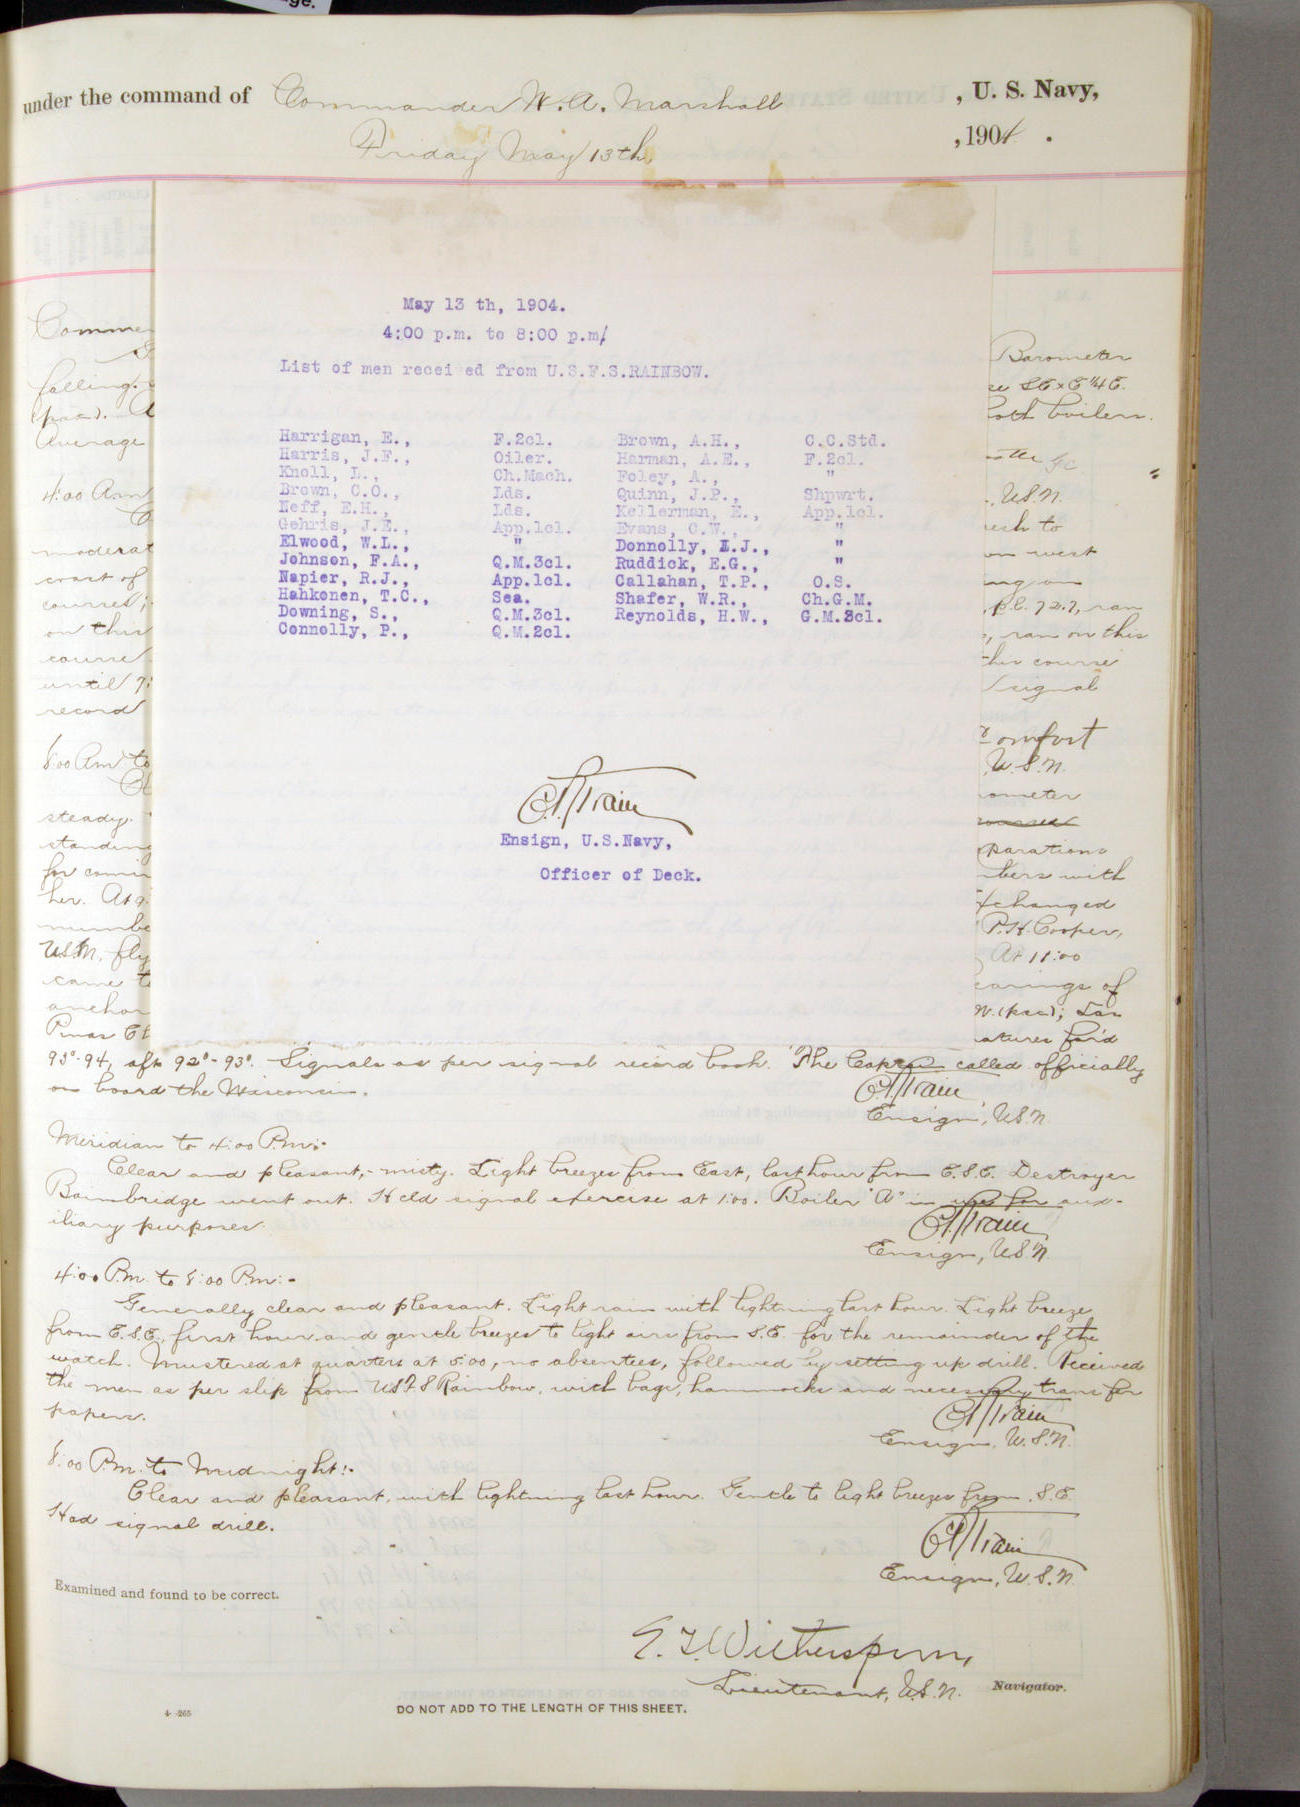 ge.
under the command of Commander W. A. Marshall , U. S. Navy,
Friday May 13th, , 1904 .
May 13 th, 1904.
4:00 p.m. to 8:00 p.m/
List of men recei ed from U.S.F.S.RAINBOW.
Harrigan, E., F.2cl. Brown, A.H., C.C.Std.
Harris, J.F., Oiler. Harman, A.E., F.2cl.
Knoll, L., Ch.Mach. Foley, A., "
Brown, C.O., Lds. Quinn, J.P., Shpwrt.
Neff, E.H., Lds. Kellerman, E., App.1cl.
Gehris, J.E., App.1cl. Evans, C.W., "
Elwood, W.L., " Donnolly, L.J., "
Johnson, F.A., Q.M.3cl. Ruddick, E.G., "
Napier, R.J., App.1cl. Callahan, T.P., O.S.
Hahkonen, T.C., Sea. Shafer, W.R., Ch.G.M.
Downing, S., Q.M.3cl. Reynolds, H.W., G.M.3cl.
Connolly, P., Q.M.2cl.
C.R. Train
Ensign, U.S.Navy,
Officer of Deck.
Barometer
falling.
both boilers.
Average
4:00 Am
U.S.N.
moderat
on west
coast of
courses;
p.l. 72.7, ran
on this , ran on this
course this course
until 7: signal
record
Comfort
8:00 Am to U.S.N.
steady.
standing parations
for comin mbers with
her. At 9: xchanged
numbe P.H. Cooper,
U.S.N. fly At 11:00
came t earings of
anchor
Pinas atures for'd
93°-94, aft 92°-93°. Signals as per signal record book. The Captain called officially
on board the Wisconsin.
C.R. Train
Ensign, U.S.N.
Meridian to 4:00 P.m:-
Clear and pleasant,- misty. Light breezes from East, last hour from E.S.E. Destroyer
Bainbridge went out. Held signal exercise at 1:00. Boiler "A" in use for aux-
iliary purposes.
C.R. Train
Ensign, U.S.N.
4:00 P.m. to 8:00 P.m:-
Generally clear and pleasant. Light rain with lightning last hour. Light breeze
from E.S.E. first hour and gentle breezes to light airs from S.E. for the remainder of the
watch. Mustered at quarters at 5:00, no absentees, followed by setting up drill. Received
the men as per slip from U.S.F.S Rainbow, with bags, hammocks and necessary transfer
papers.
C.R. Train
Ensign, U.S.N.
8:00 P.m. to Midnight:-
Clear and pleasant, with lightning last hour. Gentle to light breezes from S.E.
Had signal drill.
C.R. Train
Ensign, U.S.N.
Examined and found to be correct.
E. T. Witherspoon,
Lieutenant, U.S.N. Navigator.
4-265
DO NOT ADD TO THE LENGTH OF THIS SHEET.